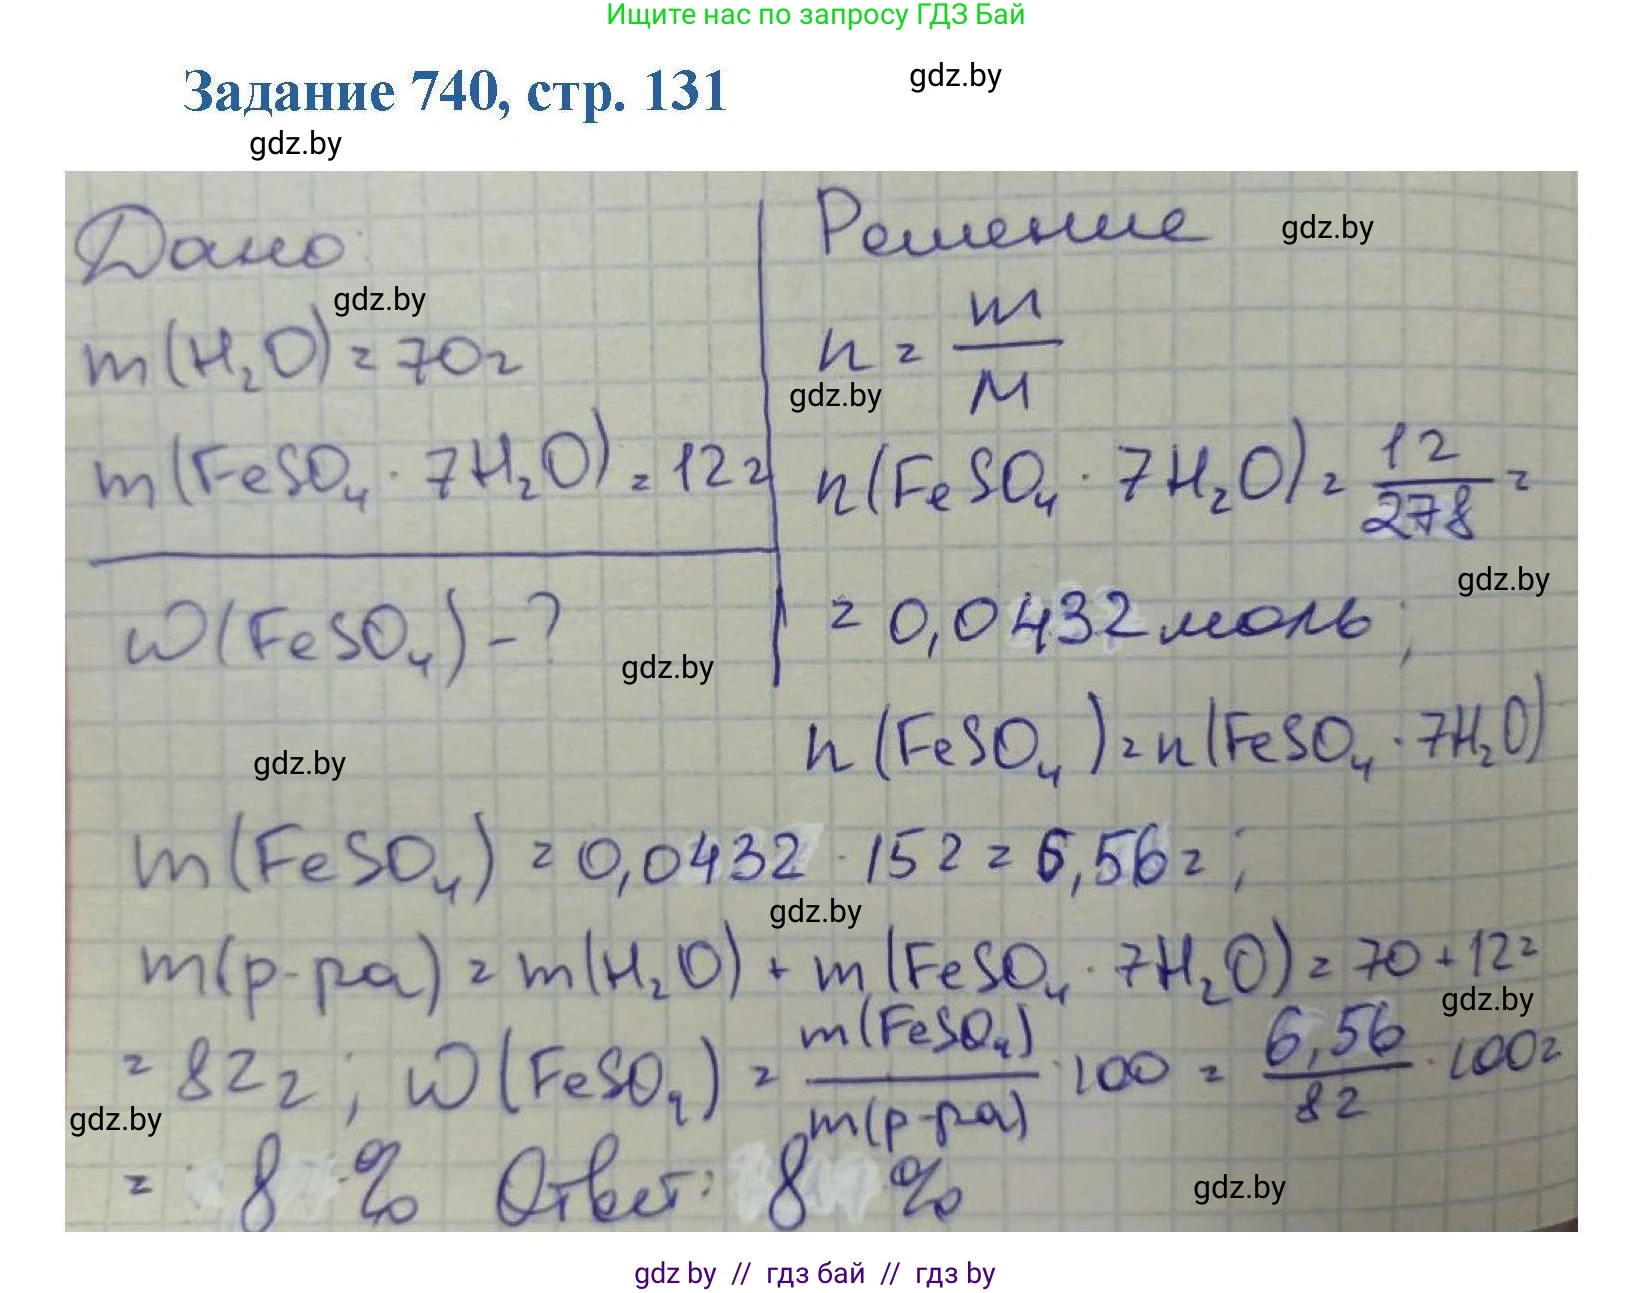 Ищите нас по запросу ГДЗ Бай
Задание 740, стр. 131
gdz.by
gdz.by
Дано:
gdz.by
m(H₂O) = 70г
m(FeSO₄ · 7H₂O) = 12г
w(FeSO₄) - ?
gdz.by
gdz.by
Решение
gdz.by
n = m/M
gdz.by
n(FeSO₄ · 7H₂O) = 12/278 =
gdz.by
= 0,0432 моль;
n(FeSO₄) = n(FeSO₄ · 7H₂O)
m(FeSO₄) = 0,0432 · 152 = 6,56г;
gdz.by
m(р-ра) = m(H₂O) + m(FeSO₄ · 7H₂O) = 70 + 12 =
gdz.by
= 82г; w(FeSO₄) = m(FeSO₄)/m(р-ра) · 100 = 6,56/82 · 100 =
gdz.by
= 8 % Ответ: 8 %
gdz.by
gdz by // гдз бай // гдз by